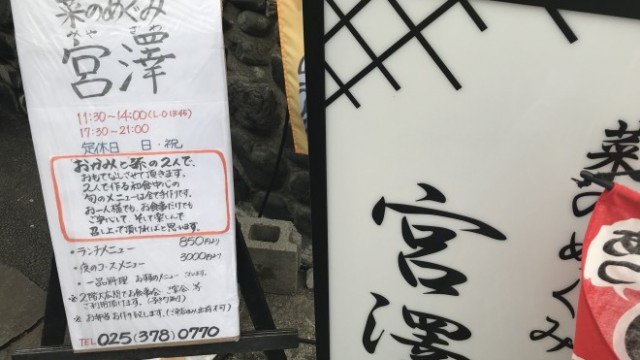 菜のめぐみ
みやざわ
宮澤
11:30~14:00(L.O 13:45)
17:30~21:00
定休日 日・祝
おかみと菜の2人で、
おもてなしさせて頂きます。
2人で作る和食中心の
旬のメニューは全て手作りです。
お一人様でも、お食事だけでも
ごゆっくり、そして楽しんで
召し上って頂ければと思います。
・ランチメニュー 850円より
・夜のコースメニュー 3000円より
・一品料理 お鍋のメニュー ございます。
※2階大広間でお食事会 ご宴会 等
ご利用頂けます。
※お弁当お作りします。
TEL 025(378)0770
菜のめぐみ
宮澤